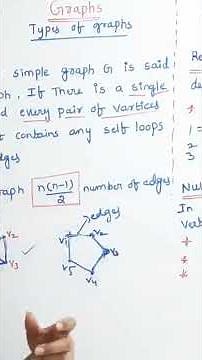 Graphs
Types of graphs
simple graph G is said
ph, If There is a single
d every pair of vertices
t contains any self loops
dges
raph n(n-1)/2 number of edges
edges
v1 v2
v3
v4
v5
v2
v3
Re
de
1 =
2
3
Nul
In
Vert